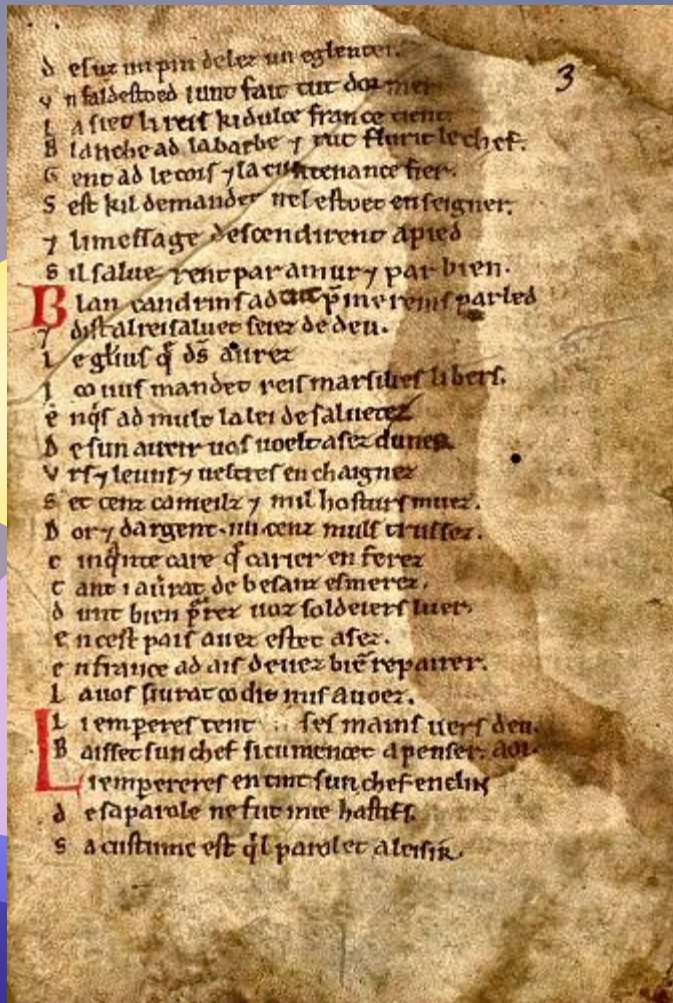 3
d esuz un pin delez un eglenter.
v n faldestoed i unt fait tut dor mer
L a siet li reis ki dulce france tient.
B lanche ad la barbe ⁊ tut flurit le chef.
G ent ad le cors ⁊ la cuntenance fier.
S est kil demandet nel estoet enseigner.
⁊ li message descendirent a pied
s il salue rent par amur ⁊ par bien.
B lan candrins ad p̄mereins parled
⁊ dist al rei saluet seiez de deu.
L e gl̃ius q̃ ds̄ aurez
I co uus mandet reis marsilies li bers.
e nq̃s ad mult la lei de saluetez
D e sun aueir uos uoelt asez duner
V rs ⁊ leuns ⁊ ueltres en chaignez
S et cenz cameilz ⁊ mil hosturs muez.
D or ⁊ dargent .iiii. cenz muls trussez.
c inq̃nte care q̃ carier en ferez
T ant i aũrat de besanz esmerez.
d unt bien p̃rez uoz soldeiers luer.
e n cest pais auez estet asez.
e n france ad ais deuez biẽ repairer.
L a uos siurat co dit mis auoez.
L i emperes tent ses mains uers deu.
B aisset sun chef si cumencet a penser. aoi.
L i empereres en tint sun chef enclin
d e sa parole ne fut mie hastifs.
s a custume est q̃l parolet a leisir.